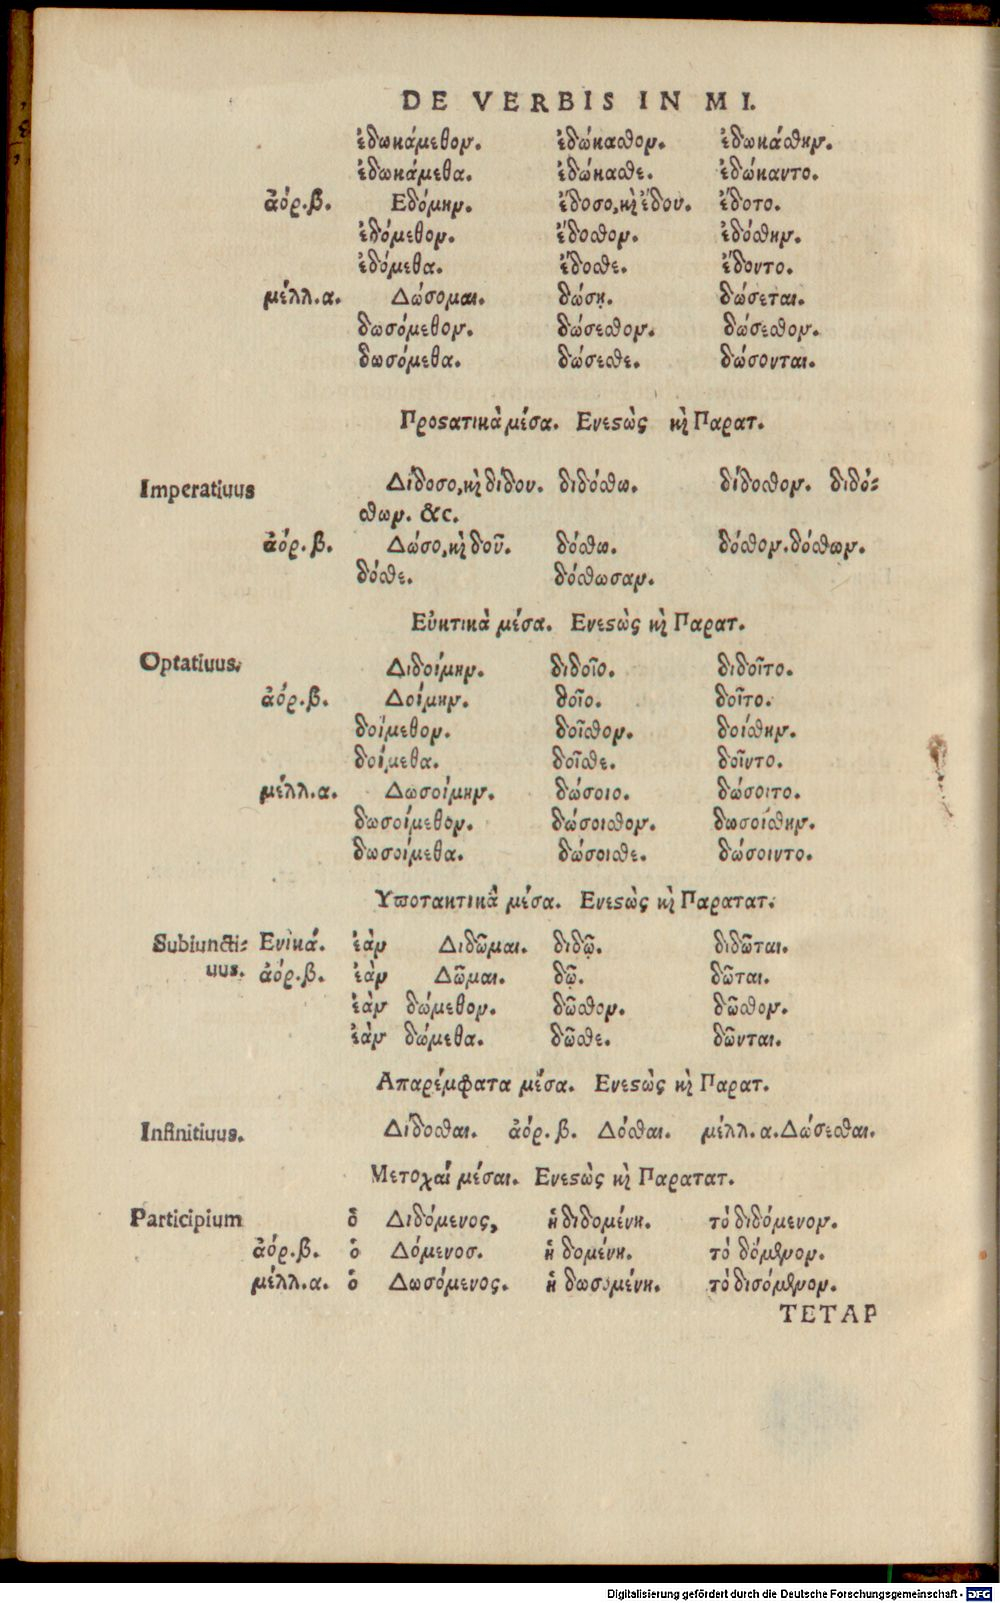 DE VERBIS IN MI.
ἐδωκάμεθον. ἐδώκασθον. ἐδωκάσθην.
ἐδωκάμεθα. ἐδώκασθε. ἐδώκαντο.
ἀόρ.β. Εδόμην. ἔδοσο, καὶ ἔδου. ἔδοτο.
ἐδόμεθον. ἔδοσθον. ἐδόσθην.
ἐδόμεθα. ἔδοσθε. ἔδοντο.
μέλλ.α. Δώσομαι. δώσῃ. δώσεται.
δωσόμεθον. δώσεσθον. δώσεσθον.
δωσόμεθα. δώσεσθε. δώσονται.
Προϛατικὰ μέσα. Ενεϛὼς καὶ Παρατ.
Imperatiuus Δίδοσο, καὶ δίδου. διδόσθω. δίδοσθον. διδό⸗
σθων. &c.
ἀόρ.β. Δώσο, καὶ δοῦ. δόσθω. δόσθον. δόσθων.
δόσθε. δόσθωσαν.
Εὐκτικὰ μέσα. Ενεϛὼς καὶ Παρατ.
Optatiuus. Διδοίμην. διδοῖο. διδοῖτο.
ἀόρ.β. Δοίμην. δοῖο. δοῖτο.
δοίμεθον. δοῖσθον. δοίσθην.
δοίμεθα. δοῖσθε. δοῖντο.
μέλλ.α. Δωσοίμην. δώσοιο. δώσοιτο.
δωσοίμεθον. δώσοισθον. δωσοίσθην.
δωσοίμεθα. δώσοισθε. δώσοιντο.
Υποτακτικὰ μέσα. Ενεϛὼς καὶ Παρατατ.
Subiuncti⸗ Ενικά. ἐὰν Διδῶμαι. διδῷ. διδῶται.
uus. ἀόρ.β. ἐὰν Δῶμαι. δῷ. δῶται.
ἐὰν δώμεθον. δῶσθον. δῶσθον.
ἐὰν δώμεθα. δῶσθε. δῶνται.
Απαρέμφατα μέσα. Ενεϛὼς καὶ Παρατ.
Infinitiuus. Δίδοσθαι. ἀόρ.β. Δόσθαι. μέλλ.α. Δώσεσθαι.
Μετοχαὶ μέσαι. Ενεϛὼς καὶ Παρατατ.
Participium ὁ Διδόμενος, ἡ διδομένη. τὸ διδόμενον.
ἀόρ.β. ὁ Δόμενοσ. ἡ δομένη. τὸ δόμενον.
μέλλ.α. ὁ Δωσόμενος. ἡ δωσομένη. τὸ δισόμενον.
ΤΕΤΑΡ
Digitalisierung gefördert durch die Deutsche Forschungsgemeinschaft - DFG